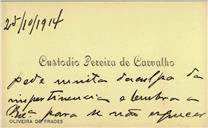 28/10/1914
Custodio Pereira de Carvalho
pede muita desculpa da
impertinencia e lembra a
para se não esquecer
OLIVEIRA DE FRADES